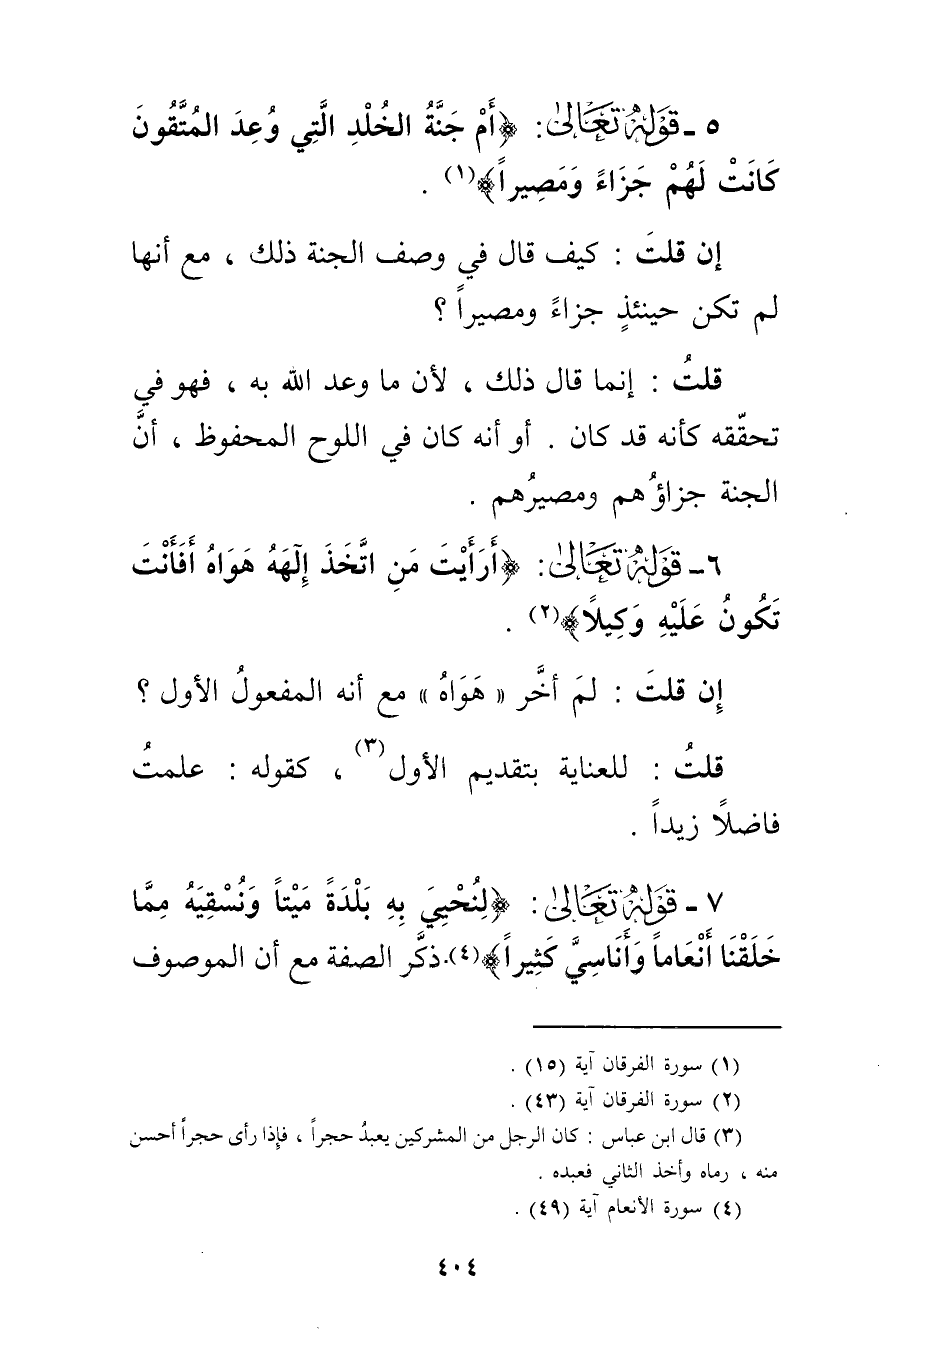 ٥ ـ قَوْلُهُ تَعَالَى: ﴿أَمْ جَنَّةُ الخُلْدِ الَّتِي وُعِدَ المُتَّقُونَ
كَانَتْ لَهُمْ جَزَاءً وَمَصِيراً﴾(١) .
إن قلتَ : كيف قال في وصف الجنة ذلك ، مع أنها
لم تكن حينئذٍ جزاءً ومصيراً ؟
قلتُ : إنما قال ذلك ، لأن ما وعد الله به ، فهو في
تحقّقه كأنه قد كان . أو أنه كان في اللوح المحفوظ ، أنَّ
الجنة جزاؤُهم ومصيرُهم .
٦ـ قَوْلُهُ تَعَالَى: ﴿أَرَأَيْتَ مَنِ اتَّخَذَ إِلَهَهُ هَوَاهُ أَفَأَنْتَ
تَكُونُ عَلَيْهِ وَكِيلًا﴾(٢) .
إن قلتَ : لمَ أخَّر « هَوَاهُ » مع أنه المفعولُ الأول ؟
قلتُ : للعناية بتقديم الأول(٣) ، كقوله : علمتُ
فاضلًا زيداً .
٧ ـ قَوْلُهُ تَعَالَى: ﴿لِنُحْيِيَ بِهِ بَلْدَةً مَيْتاً وَنُسْقِيَهُ مِمَّا
خَلَقْنَا أَنْعَاماً وَأَنَاسِيَّ كَثِيراً﴾(٤).ذكَّر الصفة مع أن الموصوف
(١) سورة الفرقان آية (١٥) .
(٢) سورة الفرقان آية (٤٣) .
(٣) قال ابن عباس : كان الرجل من المشركين يعبدُ حجراً ، فإذا رأى حجراً أحسن
منه ، رماه وأخذ الثاني فعبده .
(٤) سورة الأنعام آية (٤٩) .
٤٠٤